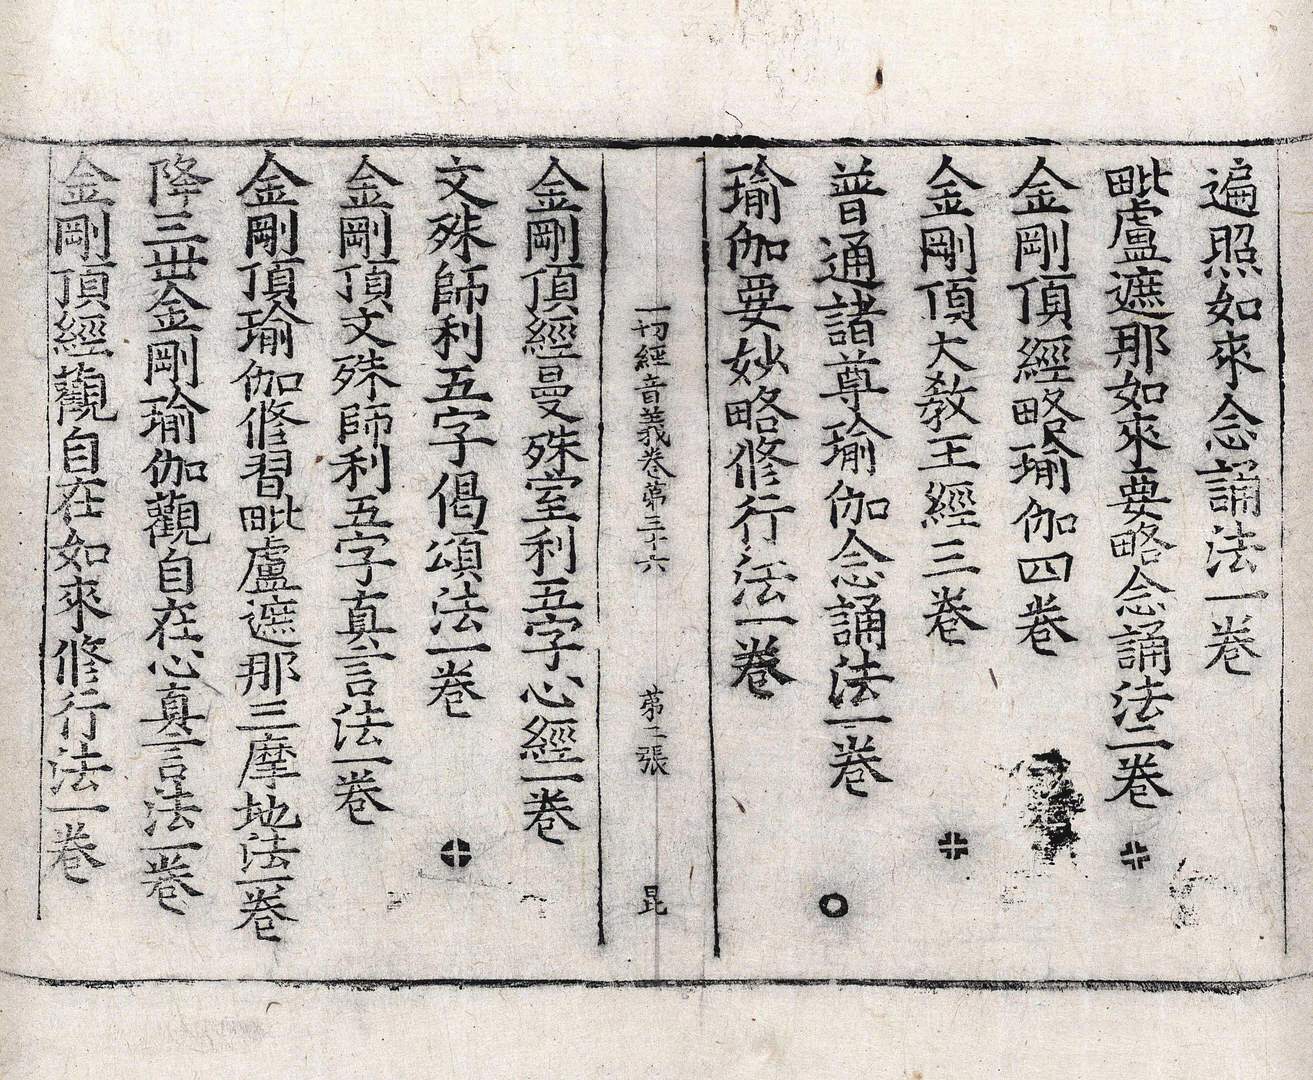 遍照如來念誦法一卷
毗盧遮那如來要略念誦法二卷
金剛頂經略瑜伽四卷
金剛頂大教王經三卷
普通諸尊瑜伽念誦法一卷
瑜伽要妙略修行法一卷
一切經音義卷第三十六 苐二張 昆
金剛頂經曼殊室利五字心經一卷
文殊師利五字偈頌法一卷
金剛頂文殊師利五字真言法一卷
金剛頂瑜伽修習毗盧遮那三摩地法一卷
降三丗金剛瑜伽觀自在心真言法一卷
金剛頂經觀自在如來修行法一卷